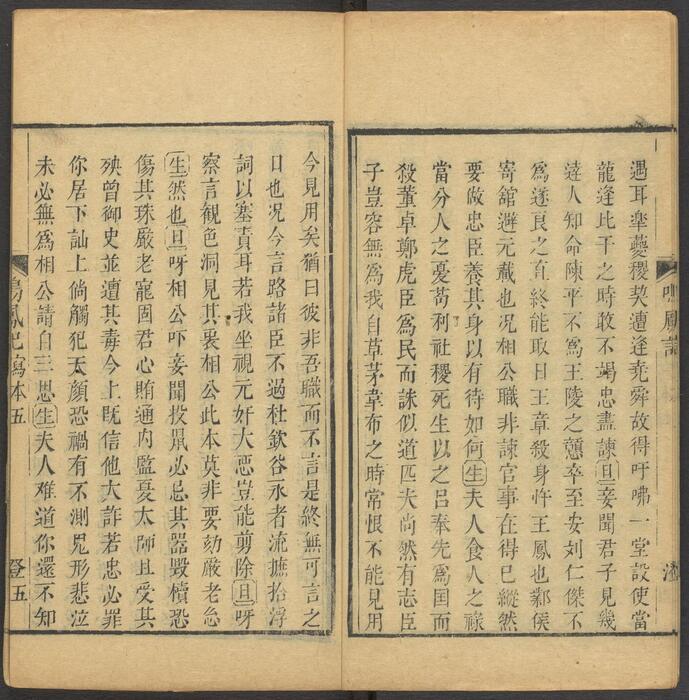 遇耳臯夔稷契遭逢堯舜故得吁咈一堂設使當
龍逢比干之時敢不竭忠盡諫旦妾聞君子見幾
達人知命陳平不爲王陵之戇卒至安刘仁傑不
爲遂良之直終能取日王章殺身忤王鳳也鄴侯
寄舘避元載也况相公職非諫官事在得已縱然
要做忠臣養其身以有待如何生夫人食人之祿
當分人之憂苟利社稷死生以之吕奉先爲国而
殺董卓鄭虎臣爲民而誅似道匹夫尚然有志臣
子豈容無爲我自草茅韋布之時常恨不能見用
鳴鳳記
今見用矣猶曰彼非吾職而不言是終無可言之
日也况今言路諸臣不過杜欽谷永者流摭拾浮
詞以塞責耳若我坐視元奸大惡豈能剪除旦呀
察言觀色洞見其衷相公此本莫非要劾嚴老么
生然也旦呀相公吓妾聞投鼠必忌其器毀櫝恐
傷其珠嚴老寵固君心賄通内監憂太師且受其
殃曽御史並遭其毒今上既信他大詐若忠必罪
你居下訕上倘觸犯天顏恐禍有不測旡形悲泣
未必無爲相公請自三思生夫人難道你還不知
鳴鳳記寫本五
登五